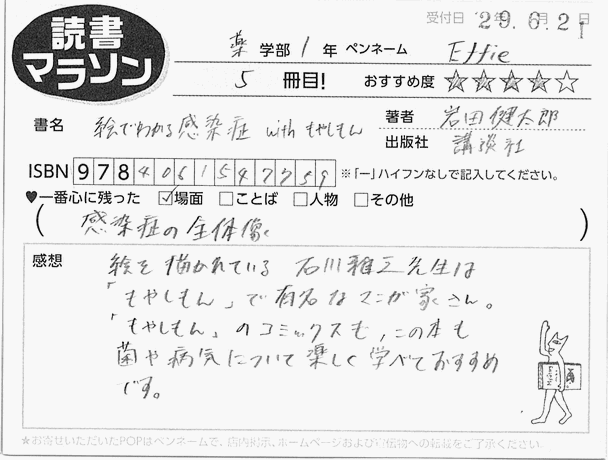 読書
マラソン
受付日 29.6.21日
薬 学部 1 年 ペンネーム Effie
5 冊目! おすすめ度 ★★★★☆
書名 絵でわかる感染症 with もやしもん
著者 岩田健太郎
出版社 講談社
ISBN 978 4061547759 ※「ー」ハイフンなしで記入してください。
♥一番心に残った ☑場面 □ことば □人物 □その他
(感染症の全体像)
感想
絵を描かれている 石川雅之先生は
「もやしもん」で有名なマンガ家さん。
「もやしもん」のコミックスも、この本も
菌や病気について楽しく学べておすすめ
です。
☆お寄せいただいたPOPはペンネームで、店内掲示、ホームページおよび宣伝物への転載をご了承ください。